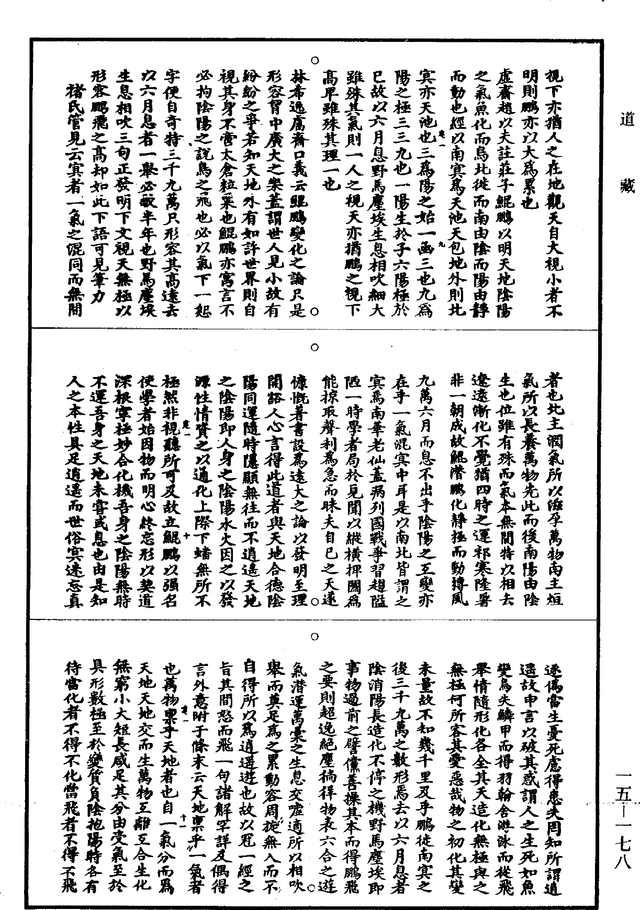 道藏
視下亦猶人之在地觀天自大視小者不
明則鵬亦以大為累也
虛齋趙以夫註莊子鯤鵬以明天地陰陽
之氣魚化而鳥北徙而南由陰而陽由靜
而動也經以南冥為天池天包地外則北
冥亦天池也三為陽之始一函三也九為
陽之極三三九也一陽生於子六陽極於
巳故以六月息野馬塵埃生息相吹細大
雖殊其氣則一人之視天亦猶鵬之視下
高卑雖殊其理一也
林希逸鬳齋口義云鯤鵬變化之論只是
形容胷中廣大之樂蓋謂世人見小故有
紛紛之爭若知天地外有如許世界則自
視其身不啻太倉粒粟也鯤鵬亦寓言不
必拘陰陽之說鳥之飛也必以氣下一怒
字便自奇特三千九萬只形容其高遠去
以六月息者一舉必歇半年也野馬塵埃
生息相吹三句正發明下文視天無極以
形容鵬飛之高却如此下語可見筆力
褚氏管見云冥者一氣之混同而無間
者也北主潤氣所以滋孕萬物南主烜
氣所以長養萬物先北而後南陽由陰
生也位雖有殊而氣本無間特以相去
遼遠漸化不覺猶四時之運祁寒隆暑
非一朝成故鯤潛鵬化靜極而動摶風
九萬六月而息不出乎陰陽之互變亦
在乎一氣混冥中耳是以南北皆謂之
冥焉南華老仙蓋病列國戰爭習趨隘
陋一時學者局於見聞以縱橫捭闔為
能掠取聲利為急而昧夫自己之天遂
慷慨著書設為遠大之論以發明至理
開豁人心言得此道者與天地合德陰
陽同運隨時隱顯無往而不逍遙天地
之陰陽即人身之陰陽水火因之以發
源性情資之以通化上際下蟠無所不
極然非視聽所可及故立鯤鵬以強名
使學者始因物而明心終忘形以契道
深根寧極妙合化機吾身之陰陽無時
不運吾身之天地未嘗或息也由是知
人之本性具足逍遙而世俗冥迷忘真
逐偽當生憂死慮得患失罔知所謂逍
遙故申言以破其惑謂人之生死如魚
變鳥失鱗甲而得羽翰舍游泳而從飛
舉情隨形化各全其天造化無極與之
無極何所容其愛惡哉物之初化其變
未量故不知幾千里及乎鵬徙南冥之
後三千九萬之數形焉去以六月息者
陰消陽長造化不停之機野馬塵埃即
事物過前之譬儻善操其本而得鵬飛
之要則超逸絕塵徜徉物表六合之遊
氣潛運萬彙之生息交噓適所以相吹
舉而莫足為之累動容周旋無入而不
自得所以為逍遙遊也故以冠一經之
旨其間怒而飛一句諸解罕詳及偶得
言外意附于條末云天地稟乎一氣者
也萬物稟乎天地者也自一氣分而為
天地天地交而生萬物互離互合生化
無窮小大短長咸足其分由受氣至於
具形數極至於變質負陰抱陽時各有
待當化者不得不化當飛者不得不飛
一五—一七八